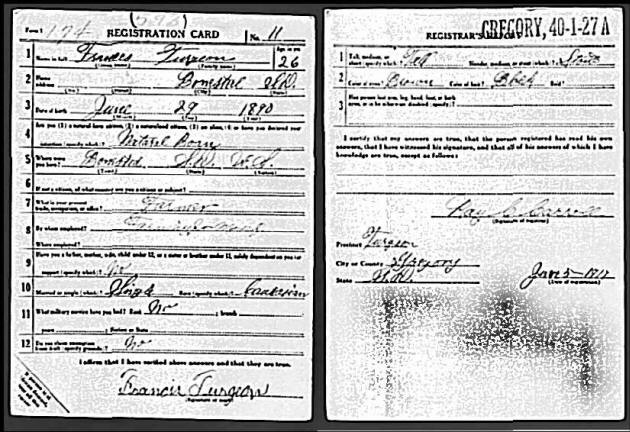 (592)
Form 1 174 REGISTRATION CARD No. 11
1 Name in full Francis Turgeon Age in yrs 26
2 Home address Bonesteel S.D.
3 Date of birth June 29 1890
4 Are you (1) a natural-born citizen, (2) a naturalized citizen, (3) an alien, (4) or have you declared your
intention (specify which)? Natural Born
5 Where were you born? Bonesteel S.D. U.S.
6 If not a citizen, of what country are you a citizen or subject?
7 What is your present trade, occupation, or office? Farmer
8 By whom employed?
Where employed?
9 Have you a father, mother, wife, child under 12, or a sister or brother under 12, solely dependent on you for
support (specify which)? No
10 Married or single (which)? Single Race (specify which)? Caucasian
11 What military service have you had? Rank No branch
years Nation or State
12 Do you claim exemption from draft (specify grounds)? No
I affirm that I have verified above answers and that they are true.
Francis Turgeon
(Signature or mark)
REGISTRAR'S REPORT GREGORY, 40-1-27 A
1 Tall, medium, or short (specify which)? Tall Slender, medium, or stout (which)?
2 Color of eyes? Brown Color of hair? Black Bald?
3 Has person lost arm, leg, hand, foot, or both
eyes, or is he otherwise disabled (specify)?
I certify that my answers are true, that the person registered has read his own
answers, that I have witnessed his signature, and that all of his answers of which I have
knowledge are true, except as follows:
Ray C. Carroll
(Signature of registrar)
Precinct Turgeon
City or County Gregory
State S.D.
June 5-1917
(Date of registration)